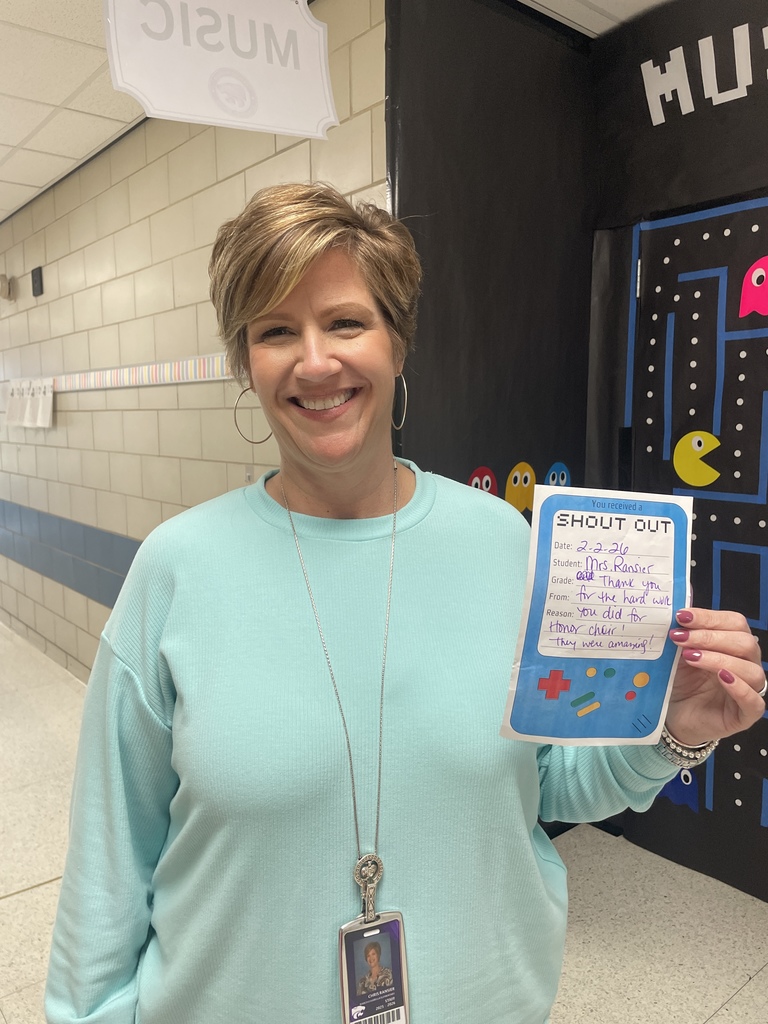 MUSIC
MUS
You received a
SHOUT OUT
Date: 2-2-26
Student: Mrs. Ransier
Grade: Thank you
From: for the hard work
Reason: you did for
Honor choir!
They were amazing!
CHRIS RANSIER
STAFF
2025 - 2026